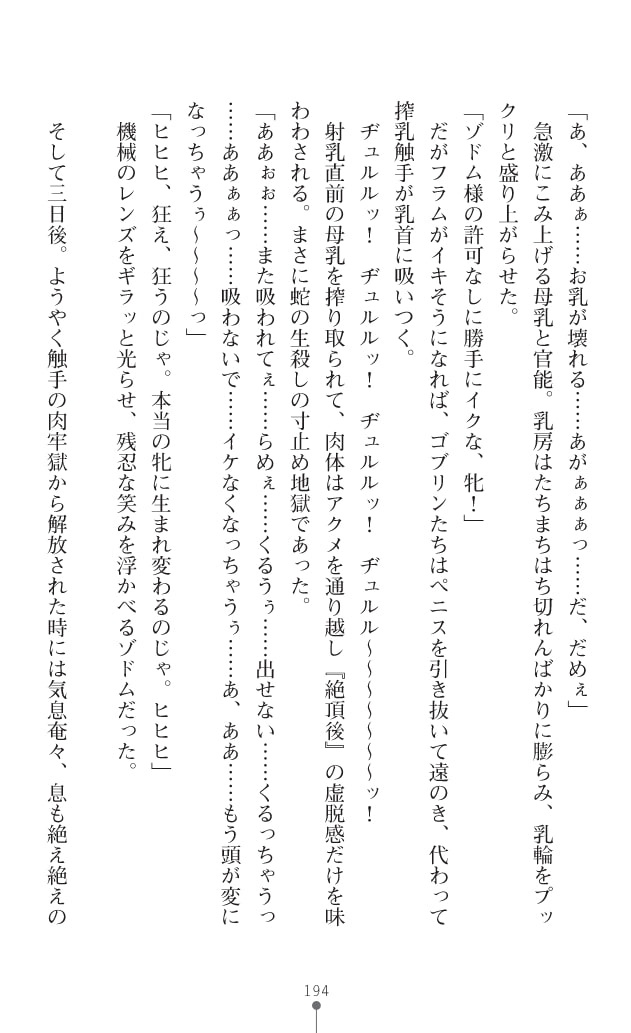 「あ、ああぁ……お乳が壊れる……あがぁぁぁっ……だ、だめぇ」
急激にこみ上げる母乳と官能。乳房はたちまちはち切れんばかりに膨らみ、乳輪をプッ
クリと盛り上がらせた。
「ゾドム様の許可なしに勝手にイクな、牝！」
だがフラムがイキそうになれば、ゴブリンたちはペニスを引き抜いて遠のき、代わって
搾乳触手が乳首に吸いつく。
ヂュルルッ！　ヂュルルッ！　ヂュルルッ！　ヂュルル〜〜〜〜〜〜〜ッ！
射乳直前の母乳を搾り取られて、肉体はアクメを通り越し『絶頂後』の虚脱感だけを味
わわされる。まさに蛇の生殺しの寸止め地獄であった。
「ああぉぉ……また吸われてぇ……らめぇ……くるうぅ……出せない……くるっちゃうっ
……ああぁぁっ……吸わないで……イケなくなっちゃうぅ……あ、ああ……もう頭が変に
なっちゃうぅ〜〜〜〜っ」
「ヒヒヒ、狂え、狂うのじゃ。本当の牝に生まれ変わるのじゃ。ヒヒヒ」
機械のレンズをギラッと光らせ、残忍な笑みを浮かべるゾドムだった。
そして三日後。ようやく触手の肉牢獄から解放された時には気息奄々、息も絶え絶えの
194